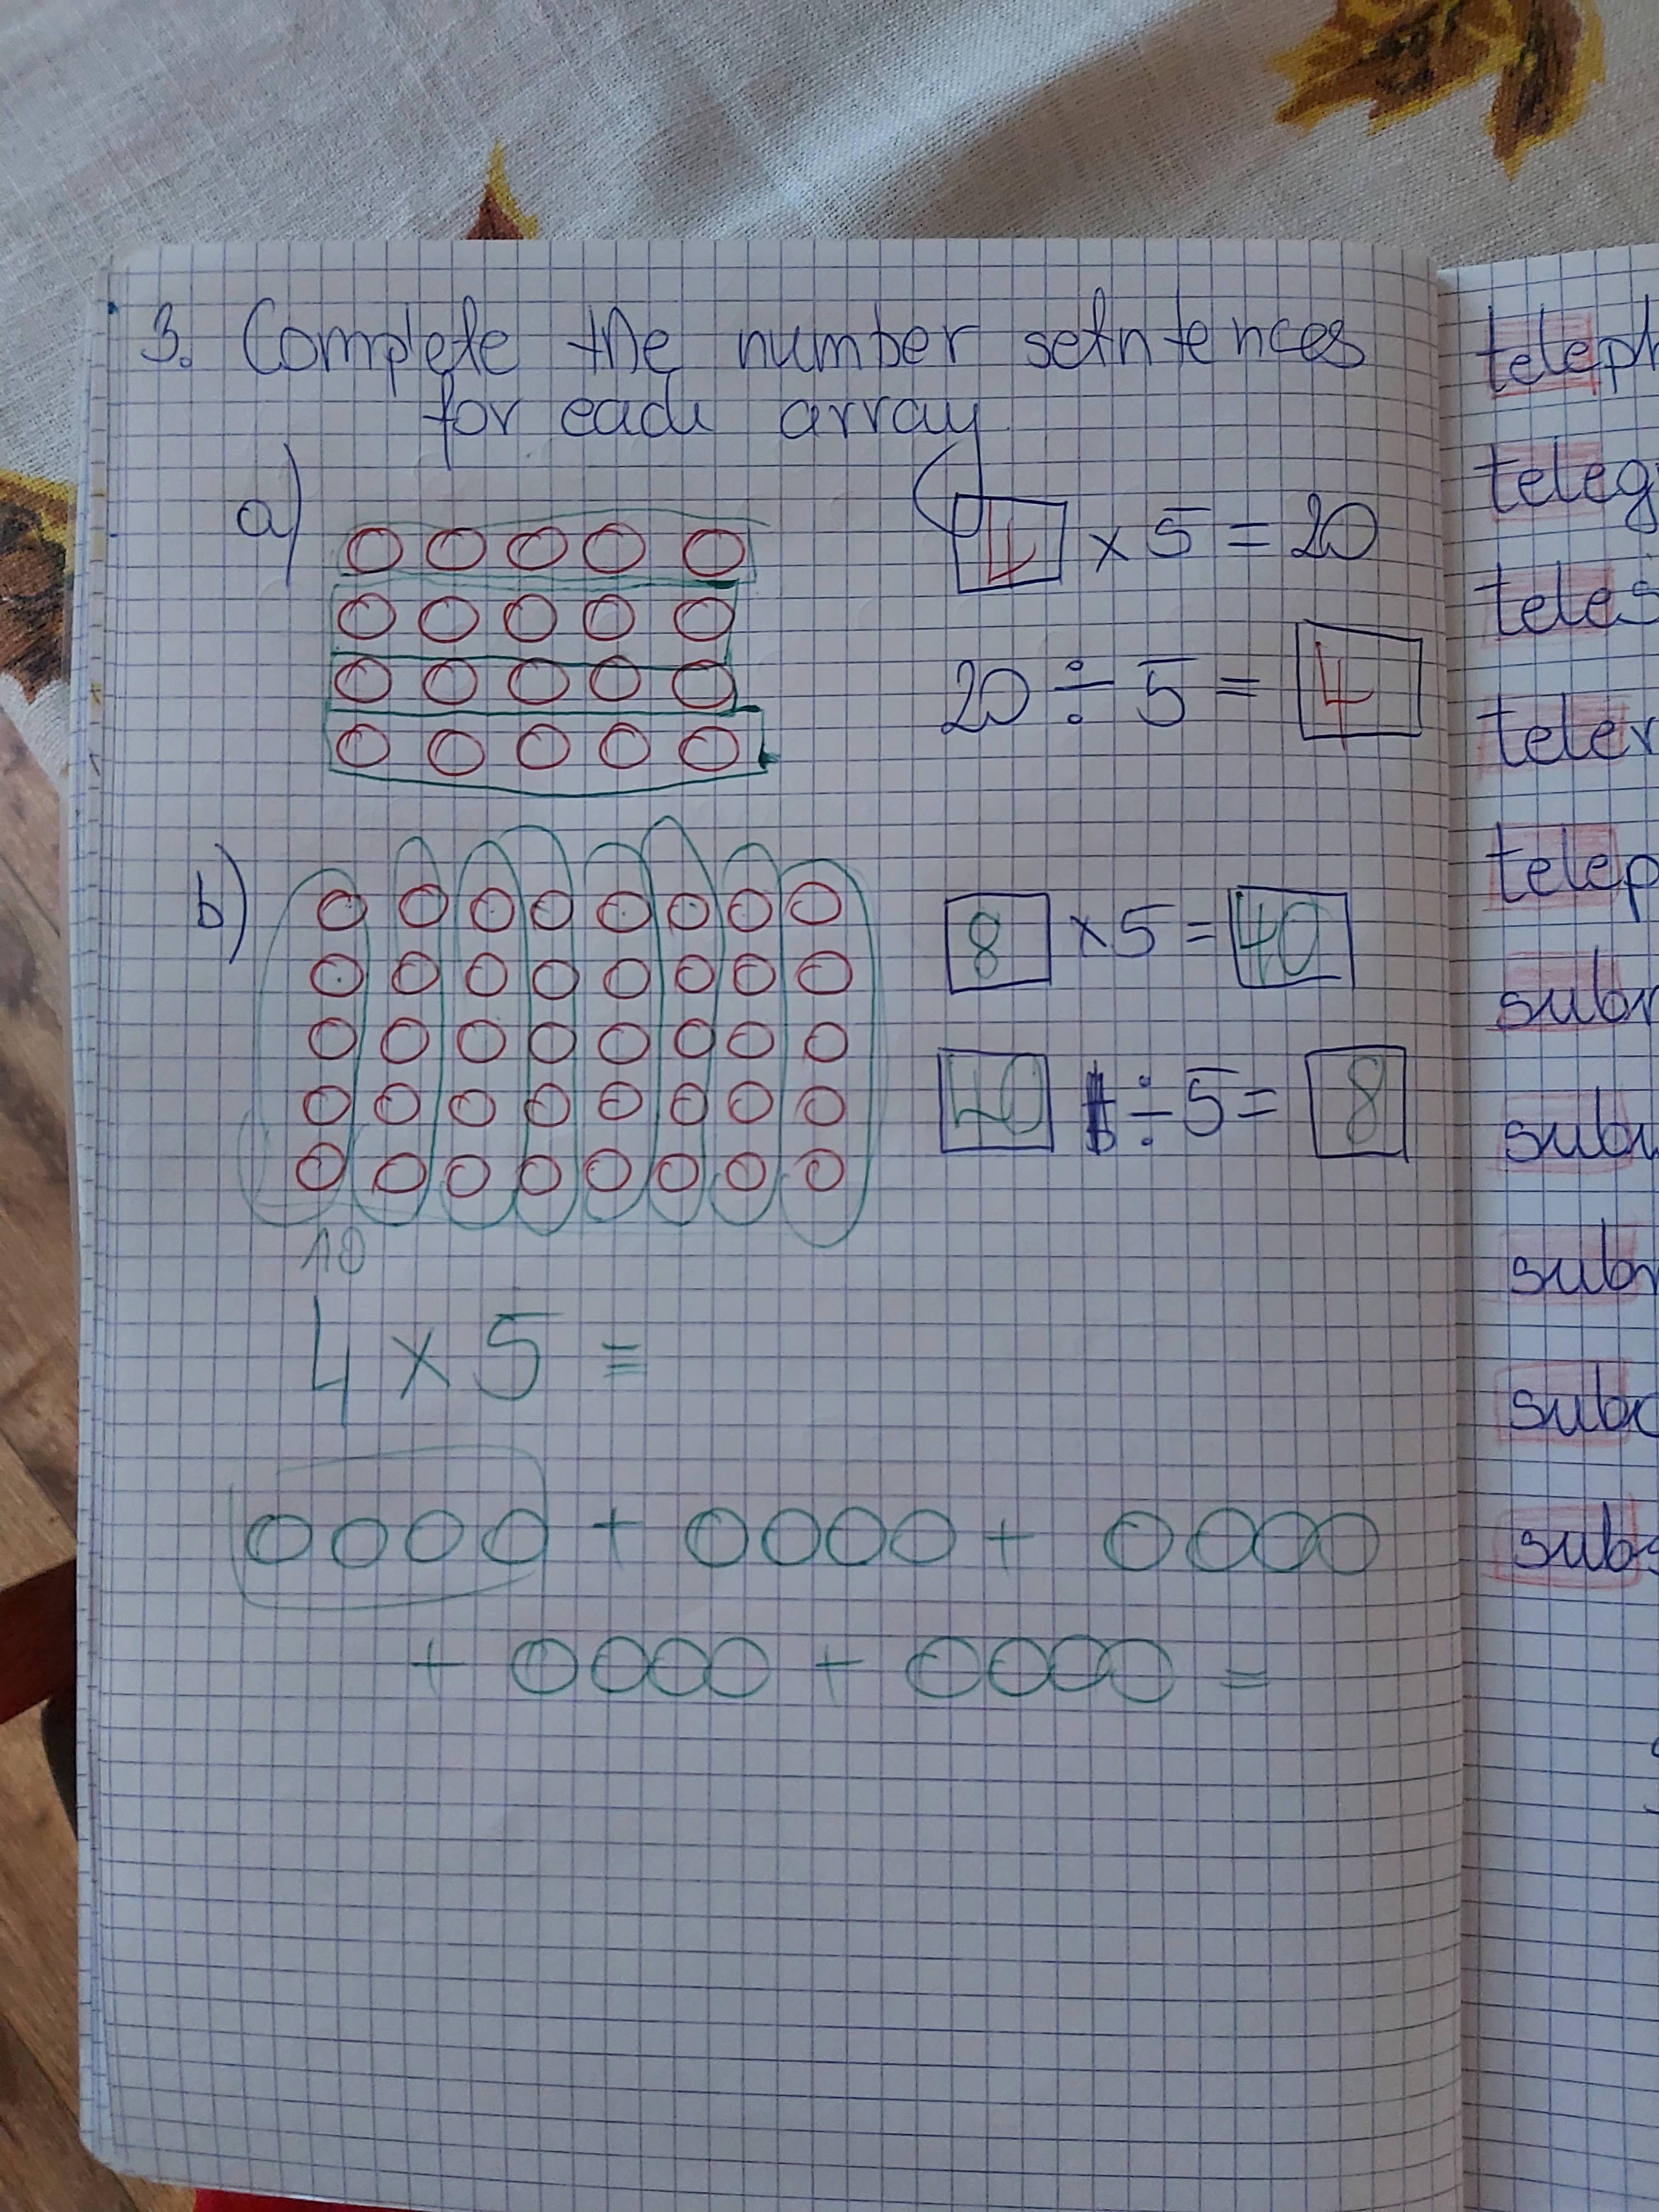 3. Complete the number setntences
for each array
a)
4 × 5 = 20
20 ÷ 5 = 4
b)
8 × 5 = 40
40 ÷ 5 = 8
10
4 × 5 =
+ +
+ + =
teleph
teleg
teles
teler
telep
sub
sub
sub
sub
subs